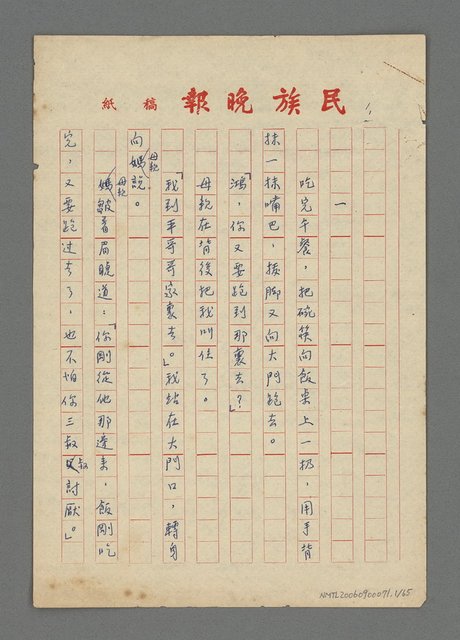 民族晚報 稿紙
一
吃完午餐，把碗筷向飯桌上一扔，用手背
抹一抹嘴巴，揆脚又向大門跑去。
「鴻，你又要跑到那裏去？」
母親在背後把我叫住了。
「我到平哥哥家裏去。」我站在大門口，轉身
向母親說。
母親皺着眉睫道：「你剛從他那邊來，飯剛吃
完，又要跑过去了，也不怕你三叔叔討厭。」
NMTL20060900071.1/65